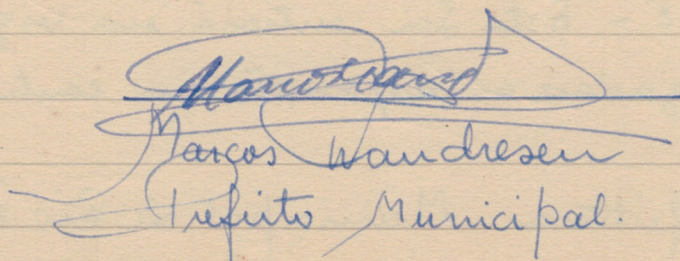 Marcos Wandresen
Prefeito Municipal.